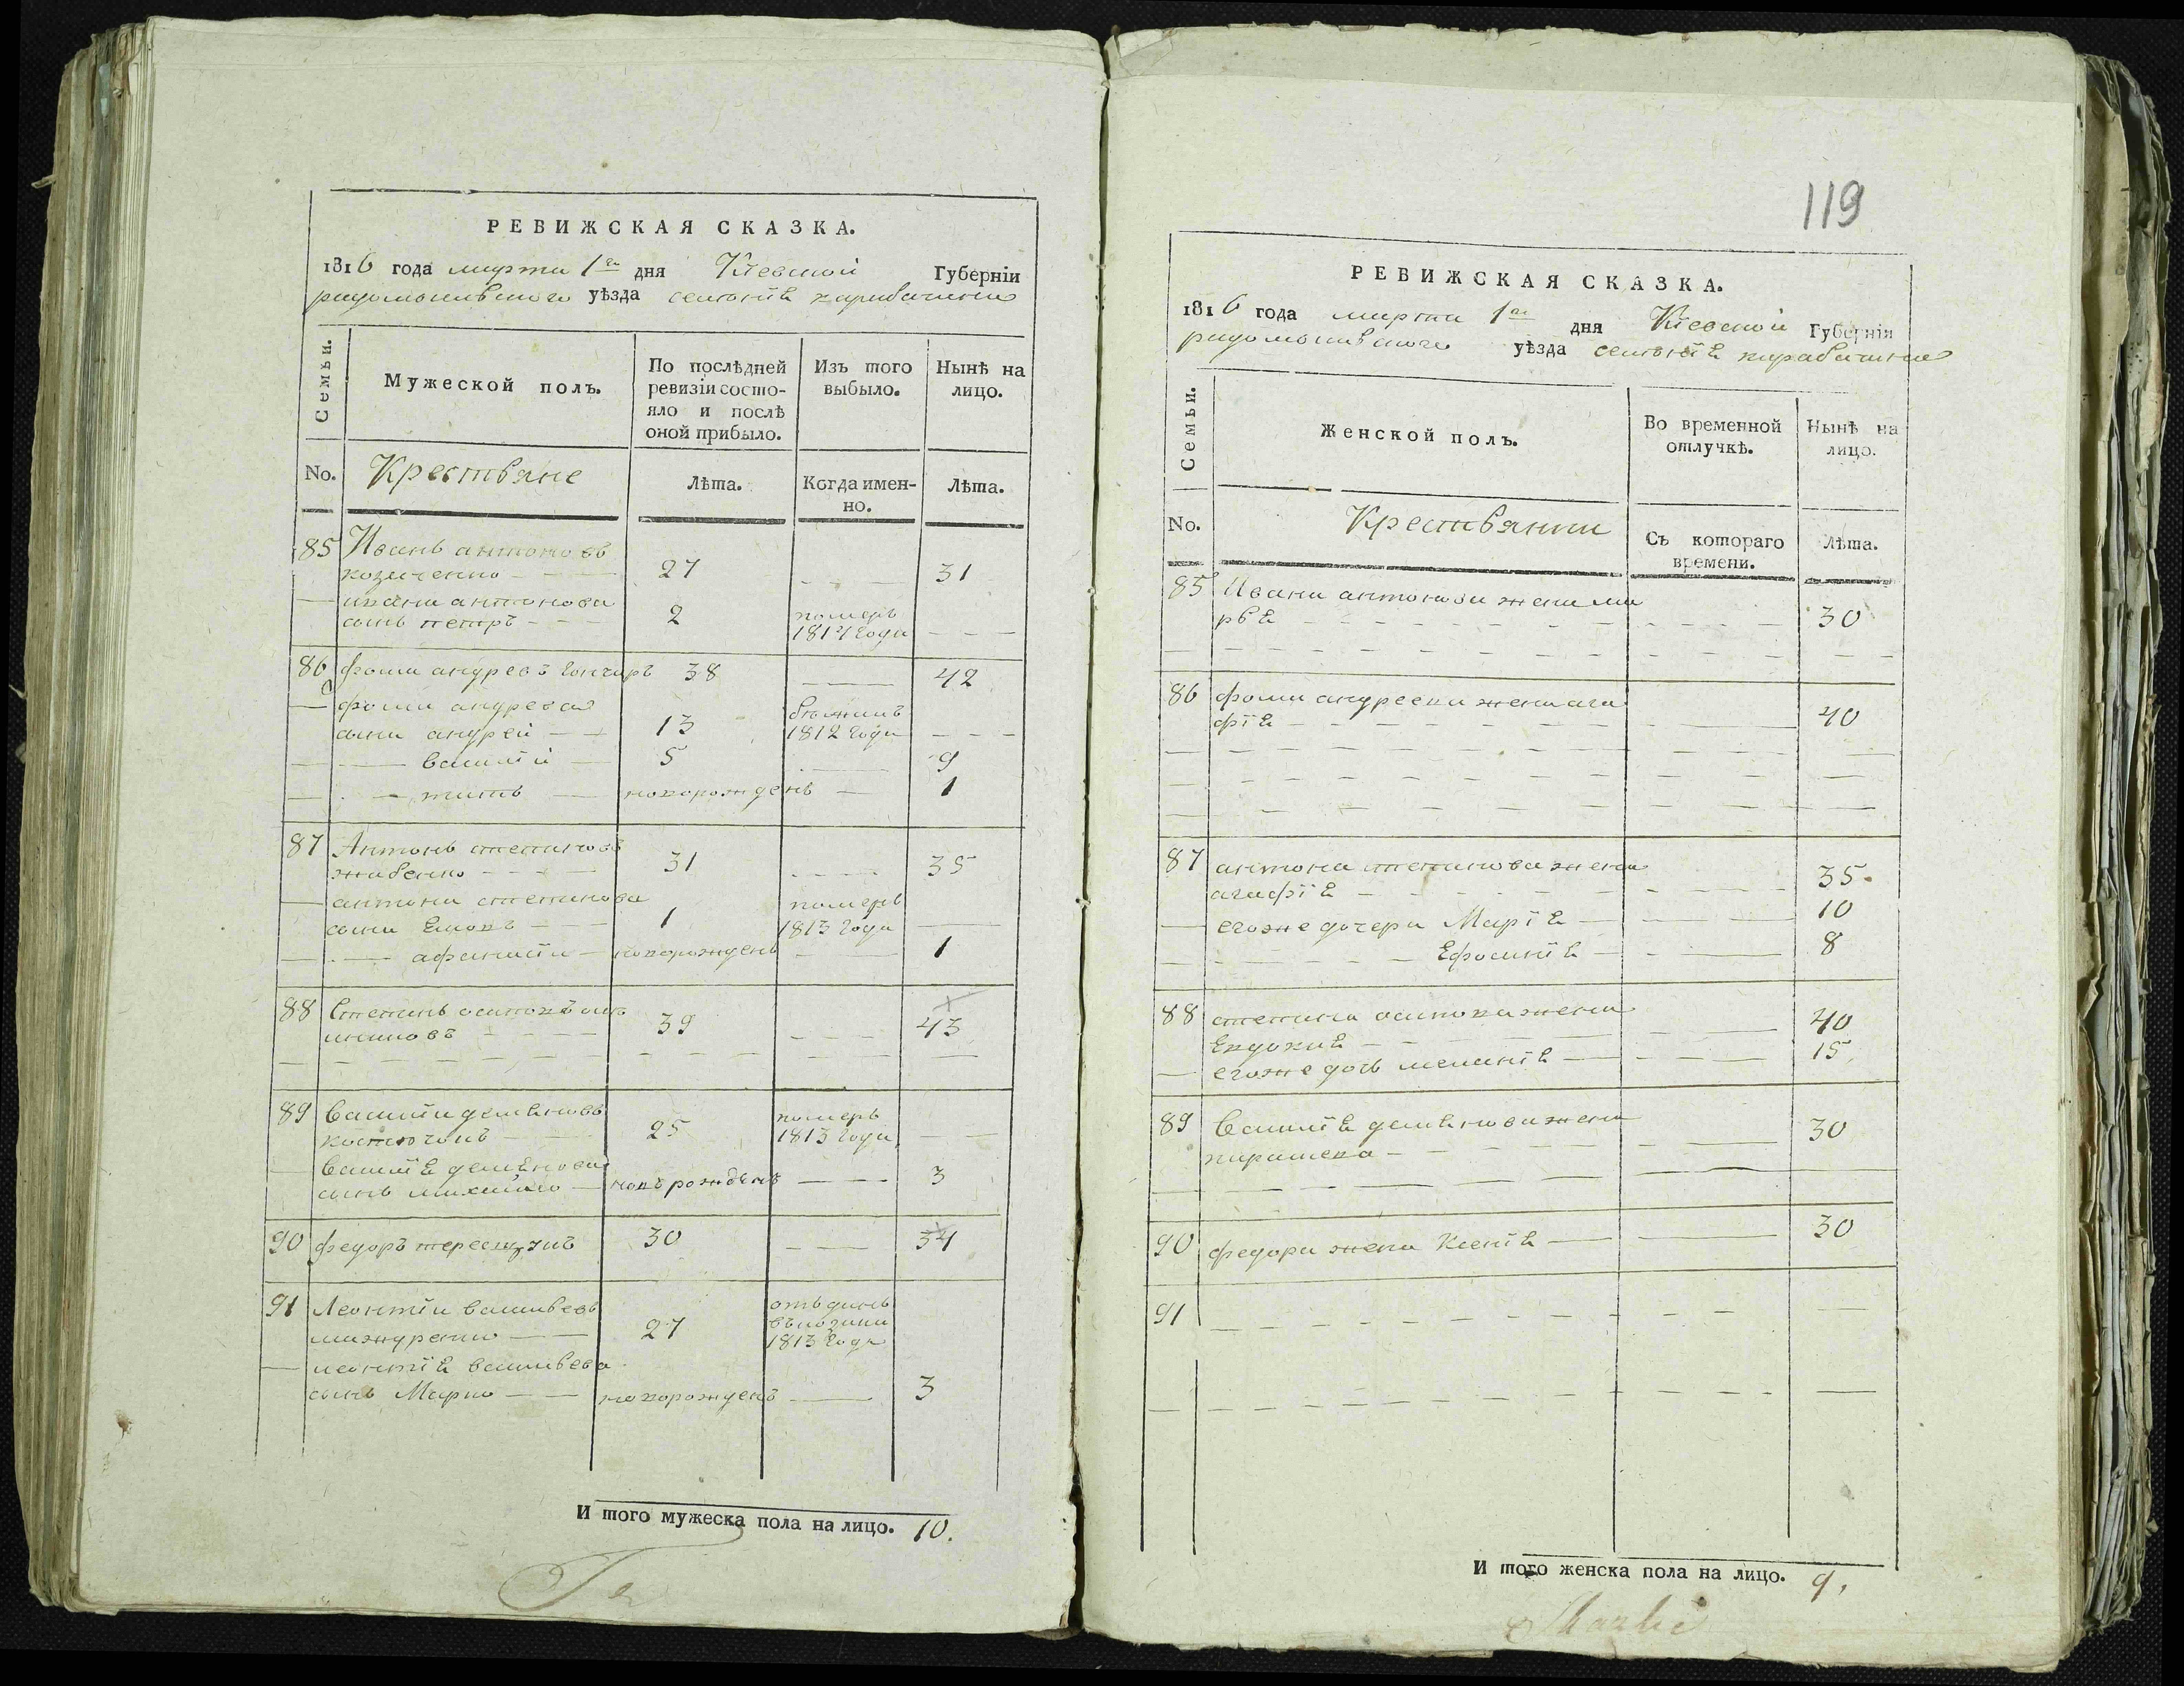 РЕВИЖСКАЯ СКАЗКА.
1816 года марта 1го дня Кіевской Губерніи
радомысльского уѣзда селенія карабачина
Семьи.
Мужеской полъ.
По послѣдней ревизіи состо-
яло и послѣ
оной прибыло.
Изъ того выбыло.
Нынѣ на лицо.
No. Крестьяне
Лѣта.
Когда имен-
но.
Лѣта.
85 Иванъ антоновъ
козаченко 27 31
ивана антонова
сынъ петръ 2 померъ 1814 года
86 фома андреевъ гончаръ 38 42
фомы андреева
сыны андрей 13 бежалъ 1812 года
василій 5 9
новорожденъ 1
87 Антонъ степановъ
жабенко 31 35
антона степанова
сыны 1 померъ 1813 года
афанасій новорожденъ 1
88 Степанъ осиповъ
39 43
89 василій демяновъ
25 померъ 1813 года
василія демянова
сынъ михайло новорожденъ 3
90 федоръ терещукъ 30 34
91 Леонтій васильевъ
мажуренко 27 отъданъ
1813 года
леонтія васильева
сынъ Марко новорожденъ 3
И того мужеска пола на лицо. 10.
119
РЕВИЖСКАЯ СКАЗКА.
1816 года марта 1го дня Кіевской Губерніи
радомысльского уѣзда селенія карабачина
Семьи.
Женской полъ.
Во временной отлучкѣ.
Нынѣ на лицо.
No. Крестьянки
Съ котораго времени.
Лѣта.
85 Ивана антонова жена ма
рья 30
86 фомы андреева жена ага
фія 40
87 антона степанова жена
агафія 35
егоже дочери Марія 10
Ефросинія 8
88 степана осипова жена
Евдокия 40
егоже дочь меланія 15
89 Василія демянова жена
параскева 30
90 федора жена Ксенія 30
91
И того женска пола на лицо. 9.